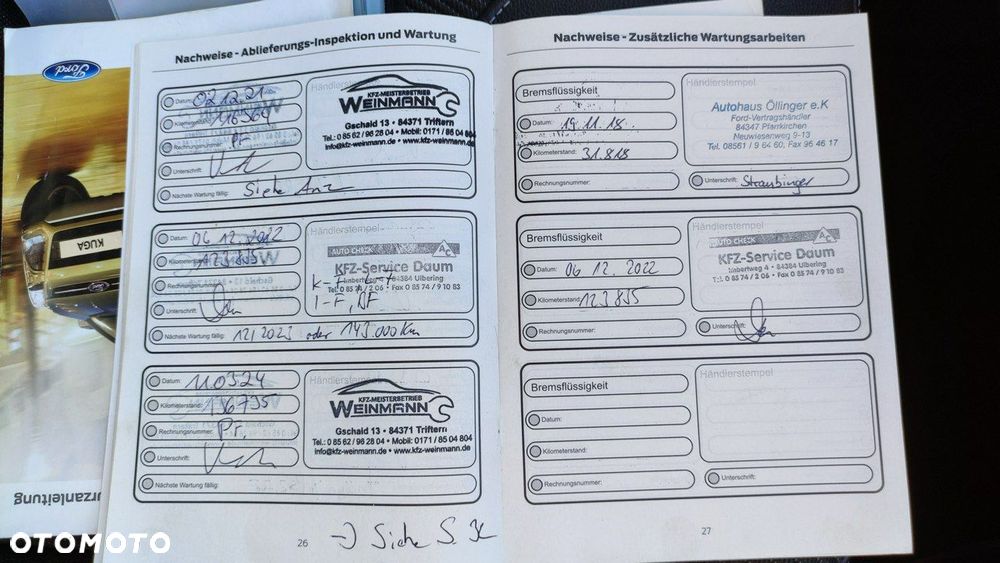 Ford
KUGA
urzanleitung
Nachweise - Ablieferungs-Inspektion und Wartung
Datum: 02.12.21
Kilometerstand: 116564
Rechnungsnummer: Pr.
Unterschrift:
Nächste Wartung fällig: Siehe Anz
Händlerstempel
KFZ-MEISTERBETRIEB
WEINMANN
Gschaid 13 • 84371 Triftern
Tel.: 0 85 62 / 96 28 04 • Mobil: 0171 / 85 04 804
info@kfz-weinmann.de • www.kfz-weinmann.de
Datum: 06.12.2022
Kilometerstand: 123 835
Rechnungsnummer:
Unterschrift:
Nächste Wartung fällig: 12/2023 oder 143.000 km
Händlerstempel
AUTO CHECK AC
KFZ-Service Daum
84384 Ulbering
Tel. 0 85 74 / 2 06 • Fax 0 85 74 / 9 10 83
Datum: 110324
Kilometerstand: 136735
Rechnungsnummer: Pr.
Unterschrift:
Nächste Wartung fällig:
Händlerstempel
KFZ-MEISTERBETRIEB
WEINMANN
Gschaid 13 • 84371 Triftern
Tel.: 0 85 62 / 96 28 04 • Mobil: 0171 / 85 04 804
info@kfz-weinmann.de • www.kfz-weinmann.de
26
Siehe S.
Nachweise - Zusätzliche Wartungsarbeiten
Bremsflüssigkeit
Datum: 19.11.18
Kilometerstand: 31.818
Rechnungsnummer:
Händlerstempel
Autohaus Öllinger e.K
Ford-Vertragshändler
84347 Pfarrkirchen
Neuwiesenweg 9-13
Tel. 08561 / 9 64 60, Fax 96 46 17
Unterschrift: Straubinger
Bremsflüssigkeit
Datum: 06.12.2022
Kilometerstand: 123.835
Rechnungsnummer:
Händlerstempel
AUTO CHECK AC
KFZ-Service Daum
Inbertweg 4 • 84384 Ulbering
Tel. 0 85 74 / 2 06 • Fax 0 85 74 / 9 10 83
Unterschrift:
Bremsflüssigkeit
Datum:
Kilometerstand:
Rechnungsnummer:
Händlerstempel
Unterschrift:
27
OTOMOTO